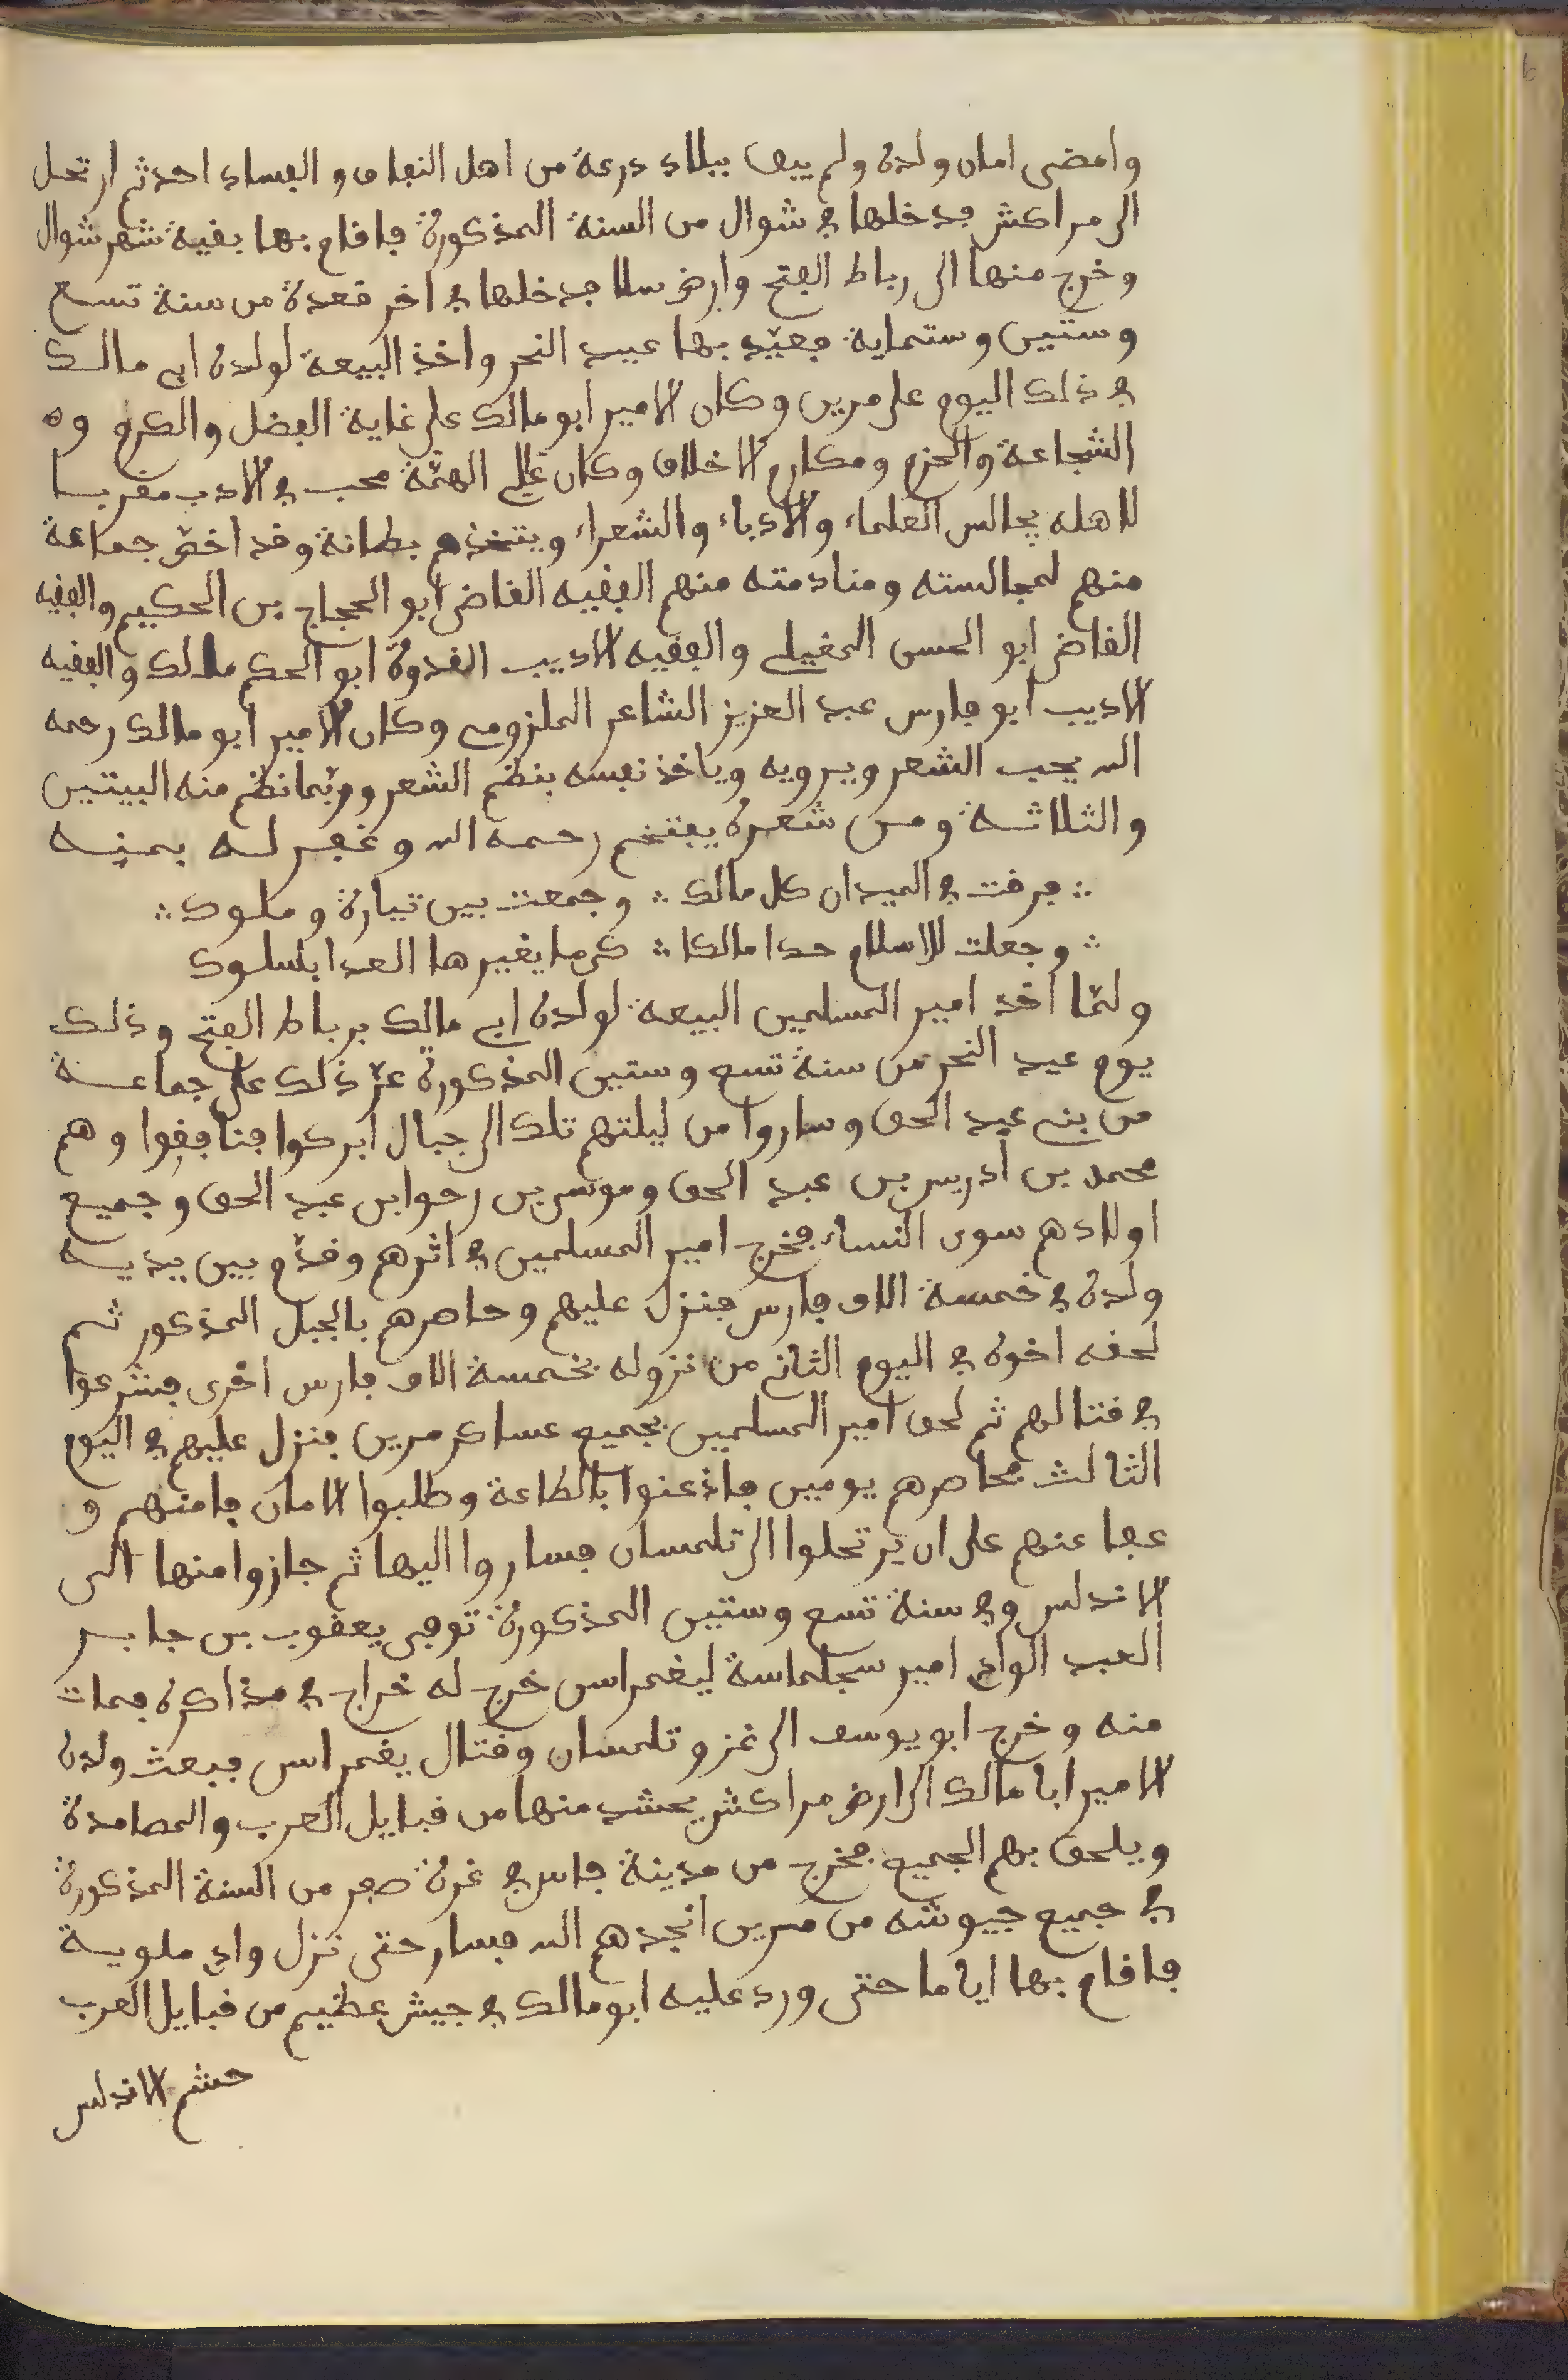 وامضى امان ولده ولم يبق ببلاد درعة من اهل النفاق والفساد احد ثم ارتحل
الى مراكش فدخلها في شوال من السنة المذكورة فاقام بها بقية شهر شوال
وخرج منها الى رباط الفتح وارض سلا فدخلها في اخر قعدة من سنة تسع
وستين وستماية فعيّد بها عيد النحر واخذ البيعة لولده ابي مالك
في ذلك اليوم على مرين وكان الامير ابو مالك على غاية الفضل والكرم و
الشجاعة والحزم ومكارم الاخلاق وكان عالي الهمّة محب في الادب مقربا
لاهله يجالس العلماء والادباء والشعراء ويتخذهم بطانة وقد اختصّ جماعة
منهم لمجالسته ومنادمته منهم الفقيه القاضي ابو الحجاج بن الحكيم والفقيه
القاضي ابو الحسن المغيلي والفقيه الاديب القدوة ابو الحكم مالك والفقيه
الاديب ابو فارس عبد العزيز الشاعر الملزوزي وكان الامير ابو مالك رحمه
الله يحب الشعر ويرويه وياخذ نفسه بنظم الشعر وربّما نظم منه البيتين
والثلاثة ومن شعره يفتخر رحمه الله وغفر له بمنه
فرقت في الميدان كل مالك وجمعت بين تيارة وملوك
وجعلت للاسلام حدا مالكا كرما يغيرها العدا بسلوك
ولمّا اخذ امير المسلمين البيعة لولده ابي مالك برباط الفتح وذلك
يوم عيد النحر من سنة تسع وستين المذكورة عزّ ذلك على جماعة
من بني عبد الحق وساروا من ليلتهم تلك الى جبال ابركوا فنافقوا وهم
محمد بن ادريس بن عبد الحق وموسى بن رحوا بن عبد الحق وجميع
اولادهم سوى النساء فخرج امير المسلمين في اثرهم وقدّم بين يديه
ولده في خمسة الاف فارس فنزل عليهم وحاصرهم بالجبل المذكور ثم
لحقه اخوه في اليوم الثاني من نزوله بخمسة الاف فارس اخرى فشرعوا
في قتالهم ثم لحق امير المسلمين بجميع عساكر مرين فنزل عليهم في اليوم
الثالث فحاصرهم يومين فاذعنوا بالطاعة وطلبوا الامان فامنهم و
عفا عنهم على ان يرتحلوا الى تلمسان فساروا اليها ثم جازوا منها الى
الاندلس وفي سنة تسع وستين المذكورة توفي يعقوب بن جابر
العبد الوادي امير سجلماسة ليغمراسن خرج له خراج في مذاكره فمات
منه وخرج ابو يوسف الى غزو تلمسان وقتال يغمراسن فبعث ولده
الامير ابا مالك الى ارض مراكش يحشد منها من قبايل العرب والمصامدة
ويلحق بهم الجميع فخرج من مدينة فاس في غرة صفر من السنة المذكورة
في جميع جيوشه من مرين انجدهم الله فسار حتى نزل وادي ملوية
فاقام بها اياما حتى ورد عليه ابو مالك في جيش عظيم من قبايل العرب
حشم الاندلس